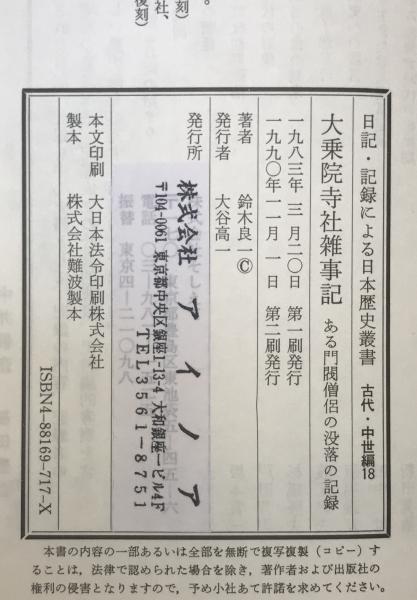 復刻）
社、
刻）
日記・記録による日本歴史叢書　古代・中世編18
大乗院寺社雑事記　ある門閥僧侶の没落の記録
一九八三年　三　月二〇日　第一刷発行
一九九〇年一一月　一　日　第二刷発行
著者　鈴木良一©
発行者　大谷高一
発行所
株式会社　アイノア
〒104-0061 東京都中央区銀座1-13-4 大和銀座一ビル4F
TEL3561-8751
振替　東京四―二一〇九八
本文印刷　大日本法令印刷株式会社
製本　株式会社難波製本
ISBN4-88169-717-X
本書の内容の一部あるいは全部を無断で複写複製（コピー）す
ることは，法律で認められた場合を除き，著作者および出版社の
権利の侵害となりますので，予め小社あて許諾を求めてください。